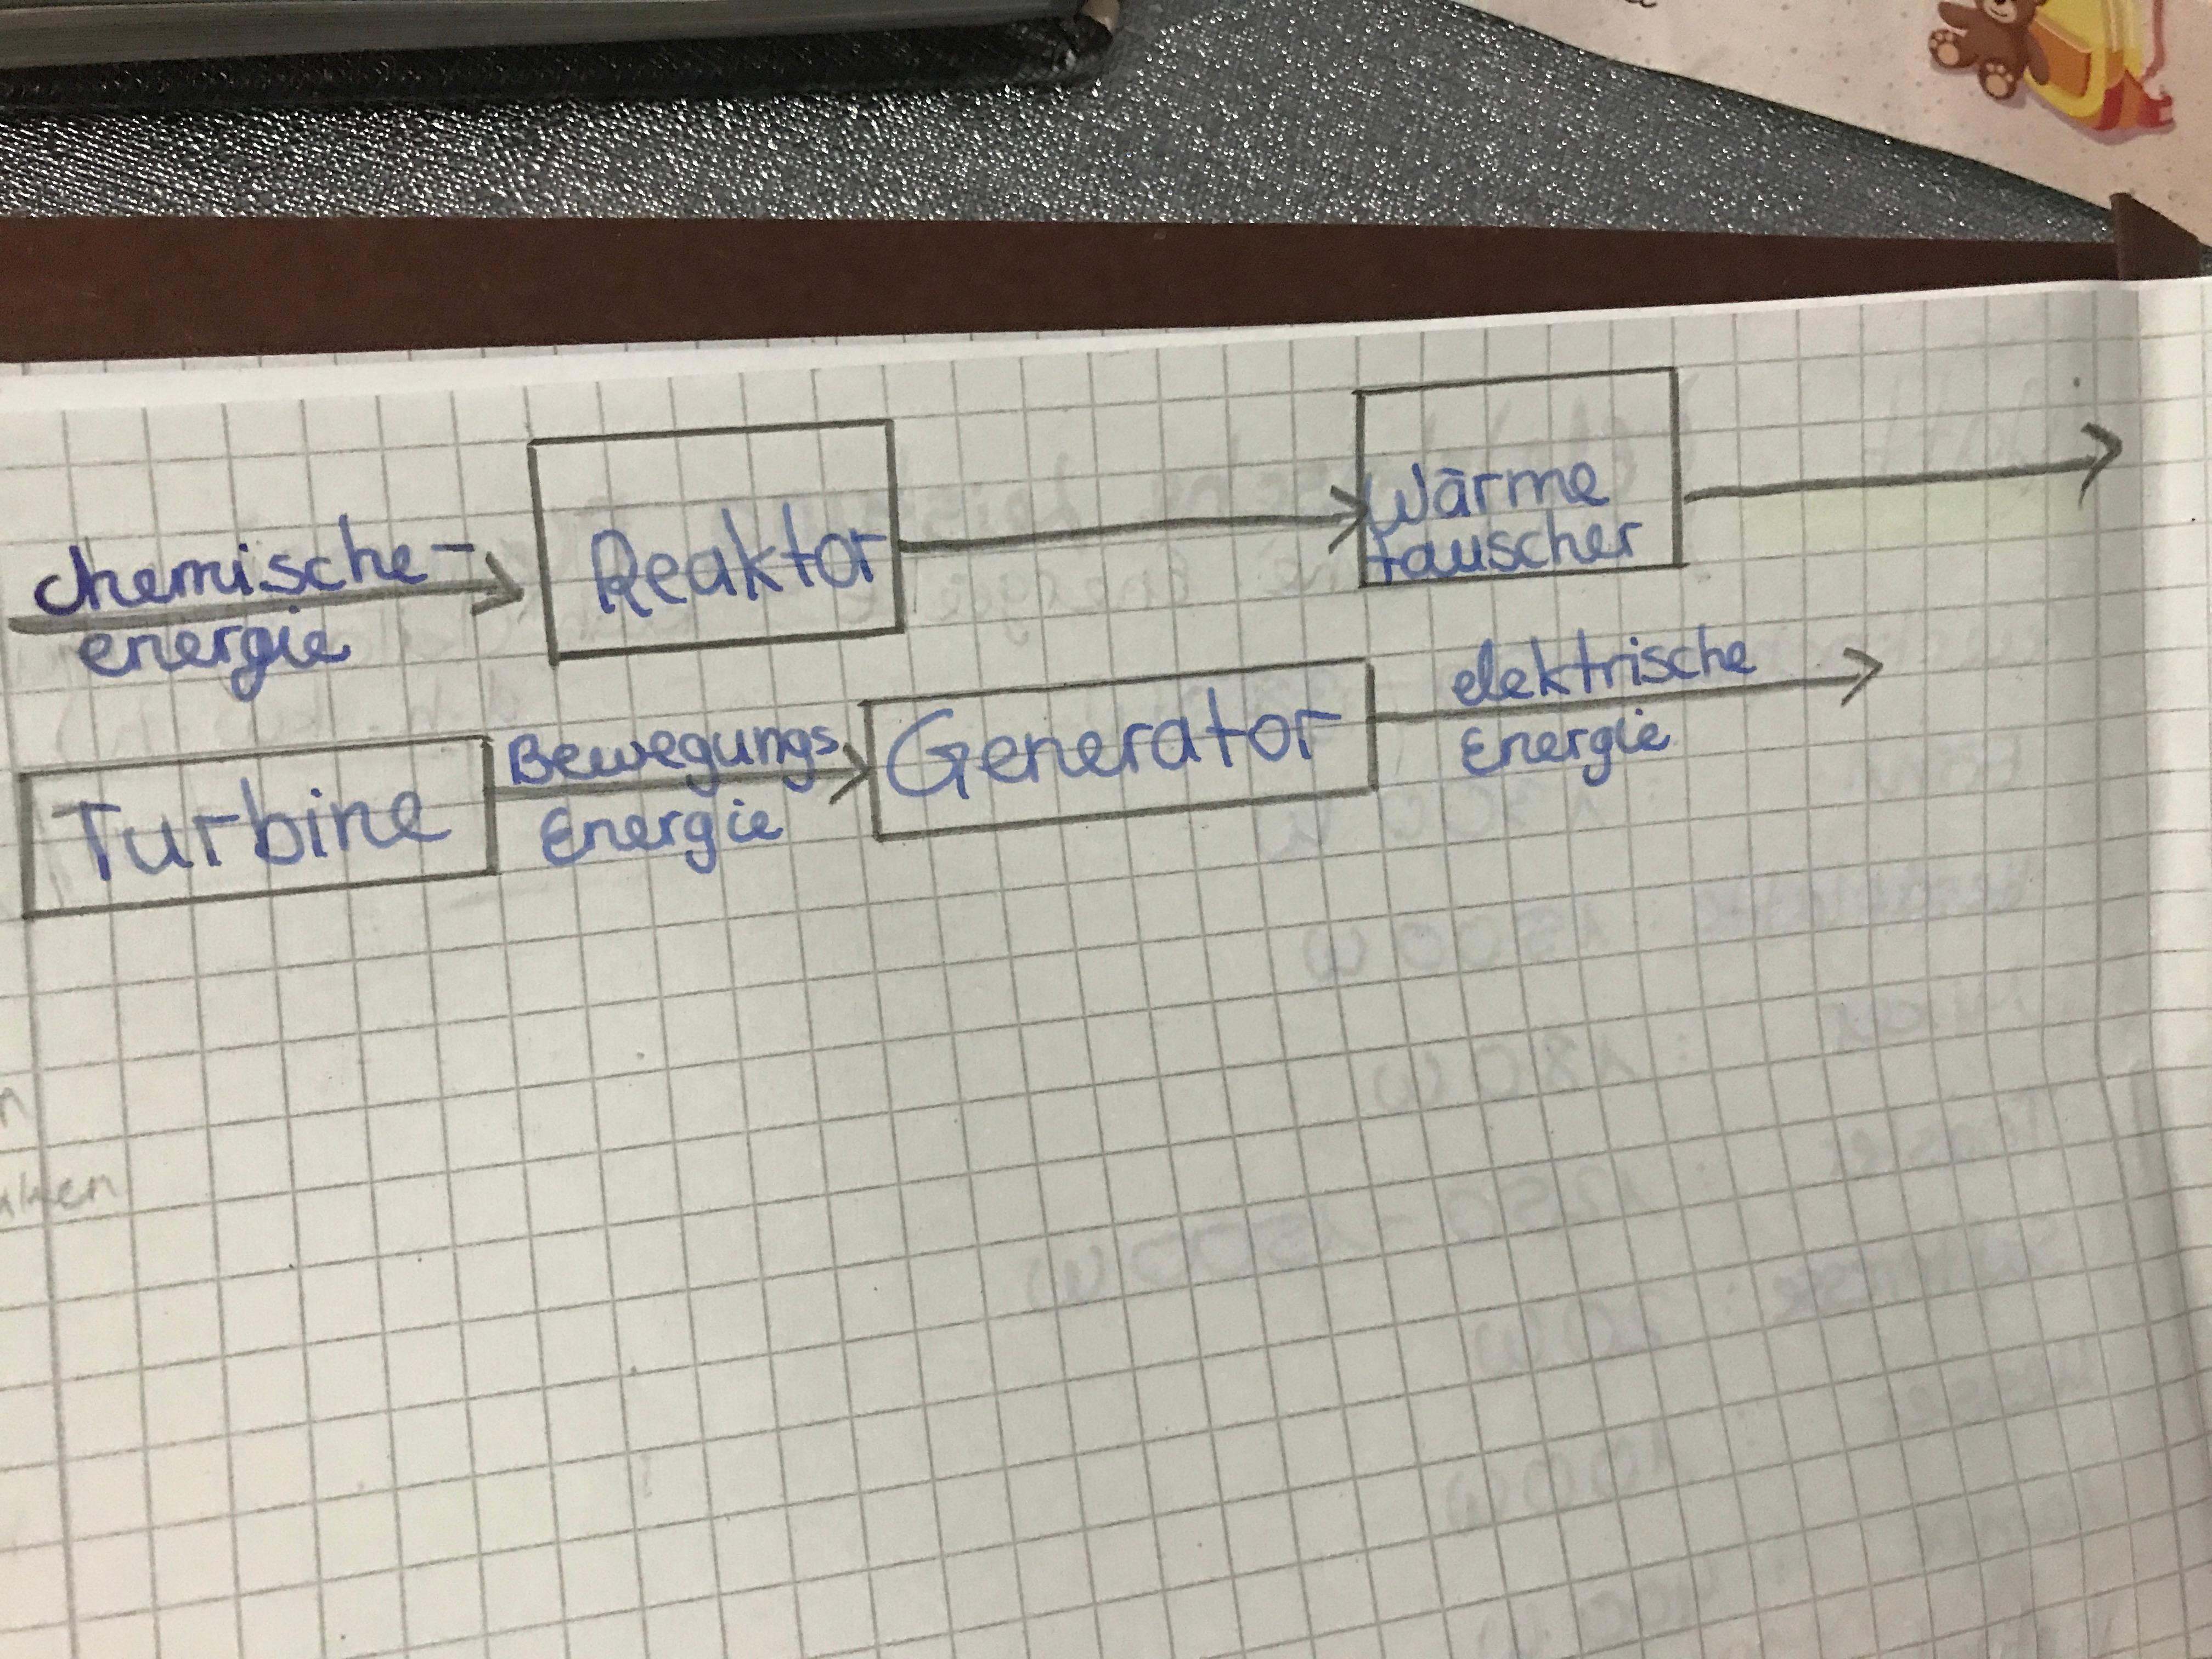 chemische-
energie
Reaktor
Wärme
tauscher
Turbine
Bewegungs
Energie
Generator
elektrische
Energie